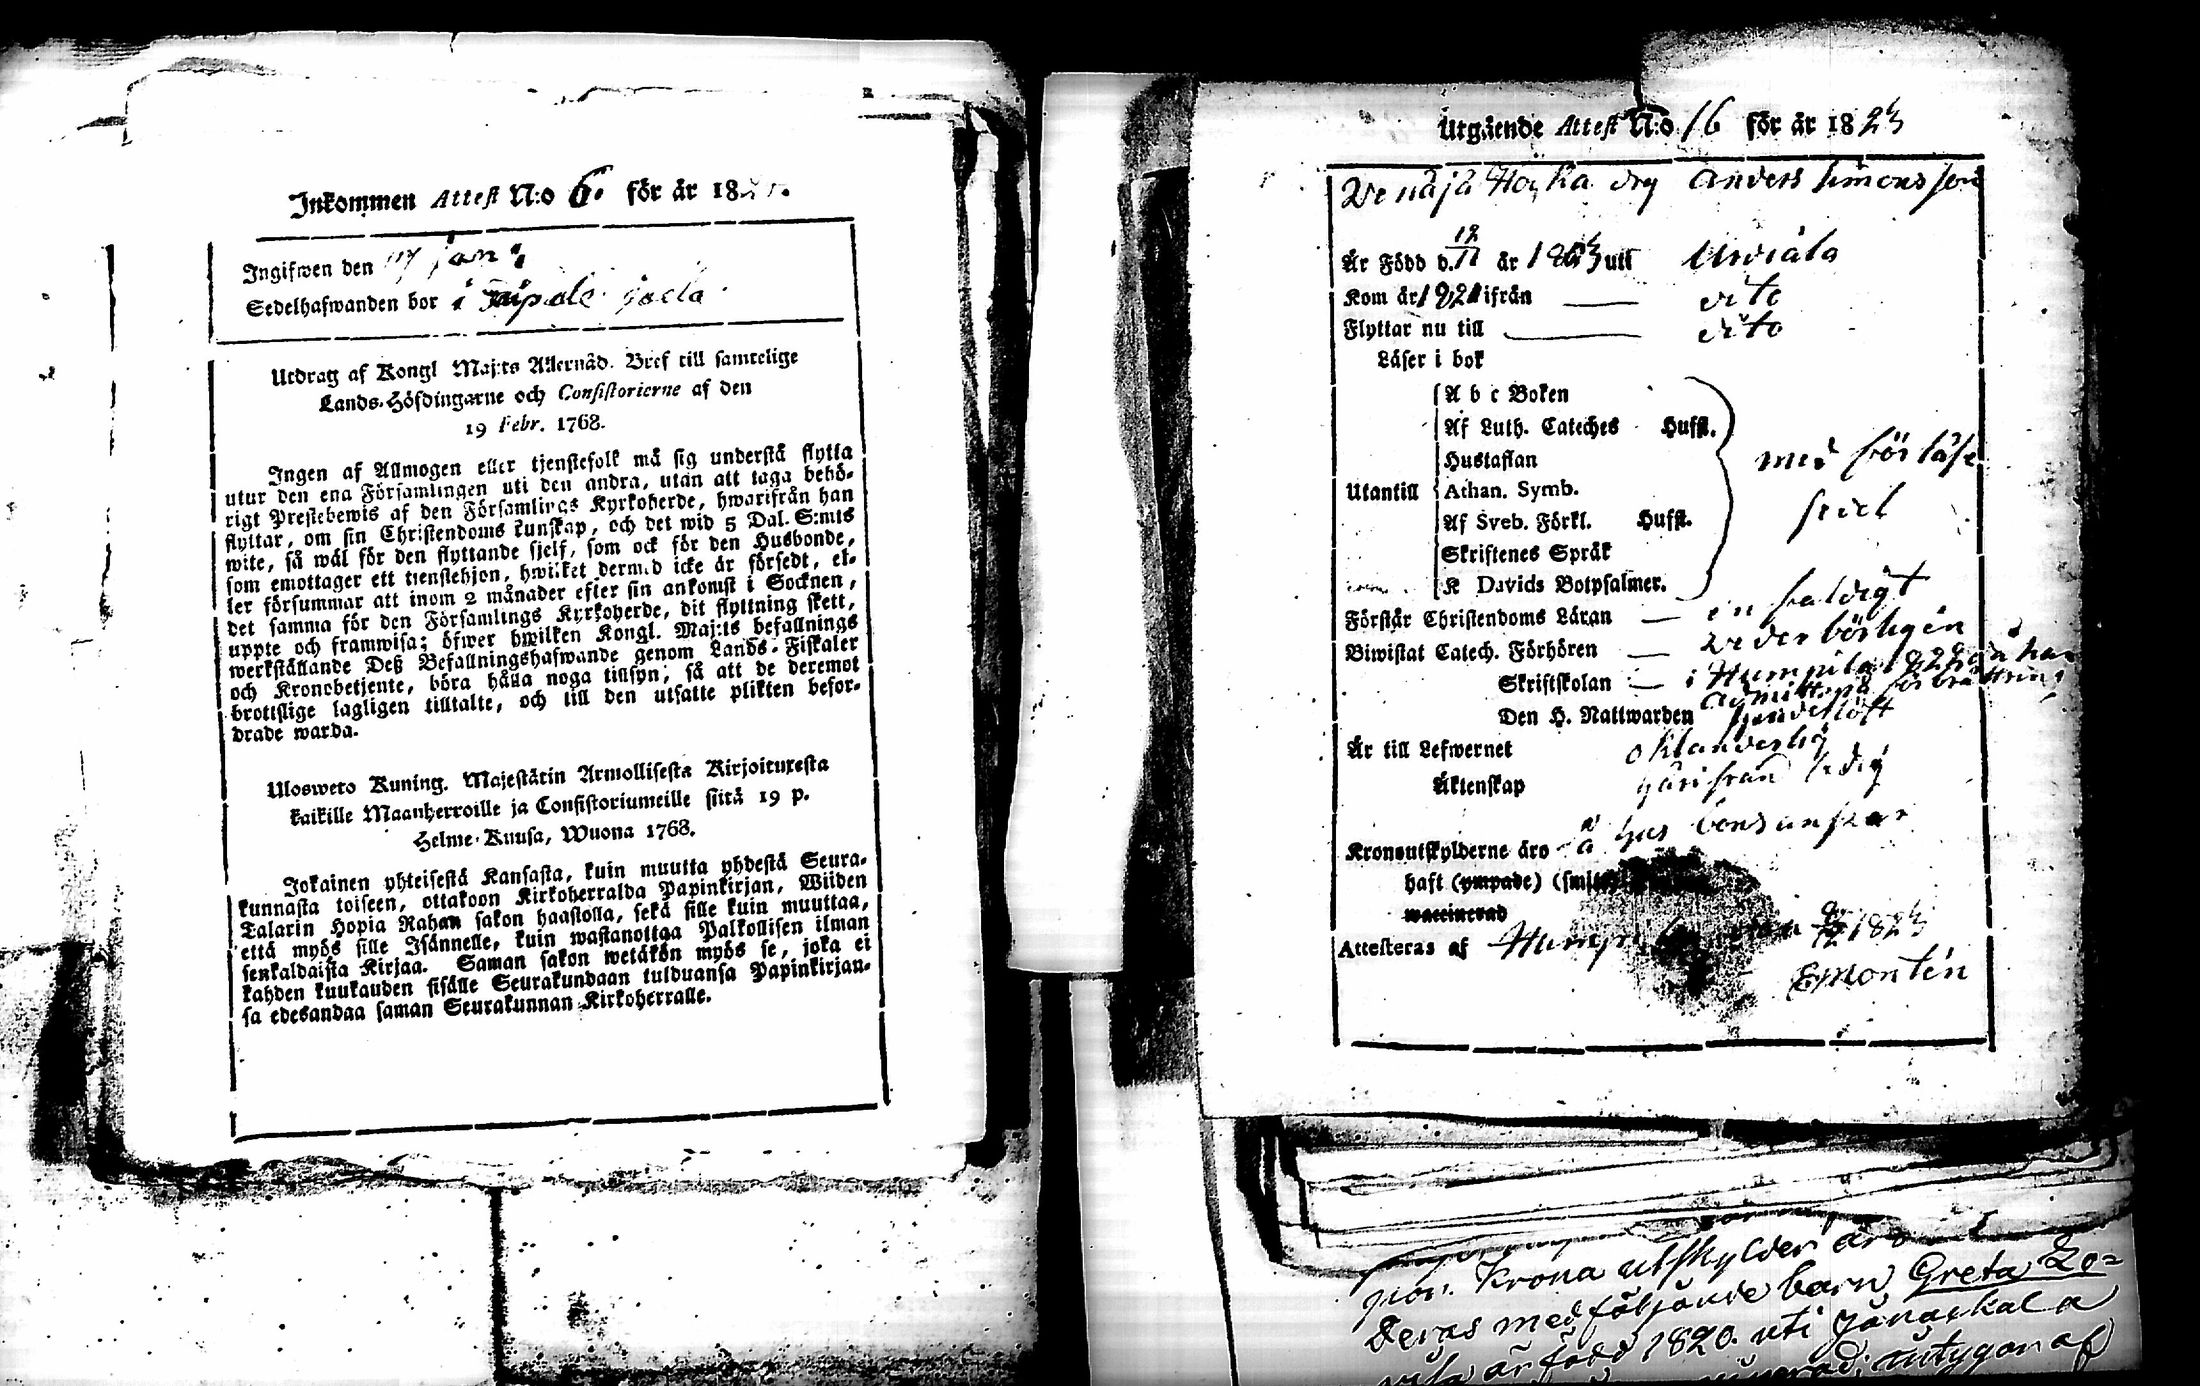 Inkommen Attest N:o 6. för år 182
Ingifwen den 17 jan
Sedelhafwanden bor i
Utdrag af Kongl Maj:ts Allernåd. Bref till samtelige
Lands-Höfdingarne och Consistorierne af den
19 Febr. 1768.
Ingen af Allmogen eller tjenstefolk må sig understå flytta
utur den ena Församlingen uti den andra, utan att taga behö-
rigt Prestebewis af den Församlings Kyrkoherde, hwarifrån han
flyttar, om sin Christendoms kunskap, och det wid 5 Dal. S:mts
wite, så wäl för den flyttande sjelf, som ock för den Husbonde,
som emottager ett tienstehjon, hwilket dermed icke är försedt, el-
ler försummar att inom 2 månader efter sin ankomst i Socknen,
det samma för den Församlings Kyrkoherde, dit flyttning skett,
uppte och framwisa; öfwer hwilken Kongl. Maj:ts befallnings
werkställande Deß Befallningshafwande genom Lands-Fiskaler
och Kronobetjente, böra hålla noga tillsyn; så att de deremot
brottslige lagligen tilltalte, och till den utsatte plikten befor-
drade warda.
Ulosweto Kuning. Majestätin Armollisesta Kirjoituxesta
kaikille Maanherroille ja Consistoriumeille siitä 19 p.
Helme-Kuusa, Wuona 1768.
Jokainen yhteisestä Kansasta, kuin muutta yhdestä Seura-
kunnasta toiseen, ottakoon Kirkoherralda Papinkirjan, Wiiden
Talarin Hopia Rahan sakon haastolla, sekä sille kuin muuttaa,
että myös sille Isännelle, kuin wastanottaa Palkollisen ilman
senkaldaista Kirjaa. Saman sakon wetäkön myös se, joka ei
kahden kuukauden sisälle Seurakundaan tulduansa Papinkirjan-
sa edesandaa saman Seurakunnan Kirkoherralle.
Utgående Attest N:o 16 för år 1823
drg Anders Simonsson
Är Född d. 12/11 år 1803 uti Urdiala
Kom år 1821 ifrån — dito
Flyttar nu till — dito
Läser i bok
A b c Boken
Af Luth. Cateches Hufst.
Hustaflan
Utantill Athan. Symb.
med förläse
sedel
Af Sveb. Förkl. Hufst.
Skriftenes Språk
K Davids Botpsalmer.
Förstår Christendoms Läran — enfaldigt
Biwistat Catech. Förhören — wederbörligen
Skriftskolan — i Humpila
Den H. Nattwarden
Är till Lefwernet oklanderlig
Äktenskap härifrån ledig
Kronoutskylderne äro å husbondsens
haft (ympade)
waccinerad
Attesteras af 1823
E Montén
Krona utskylder äro
Deras medföljande barn Greta Lo=
visa är född 1820. uti Janackala